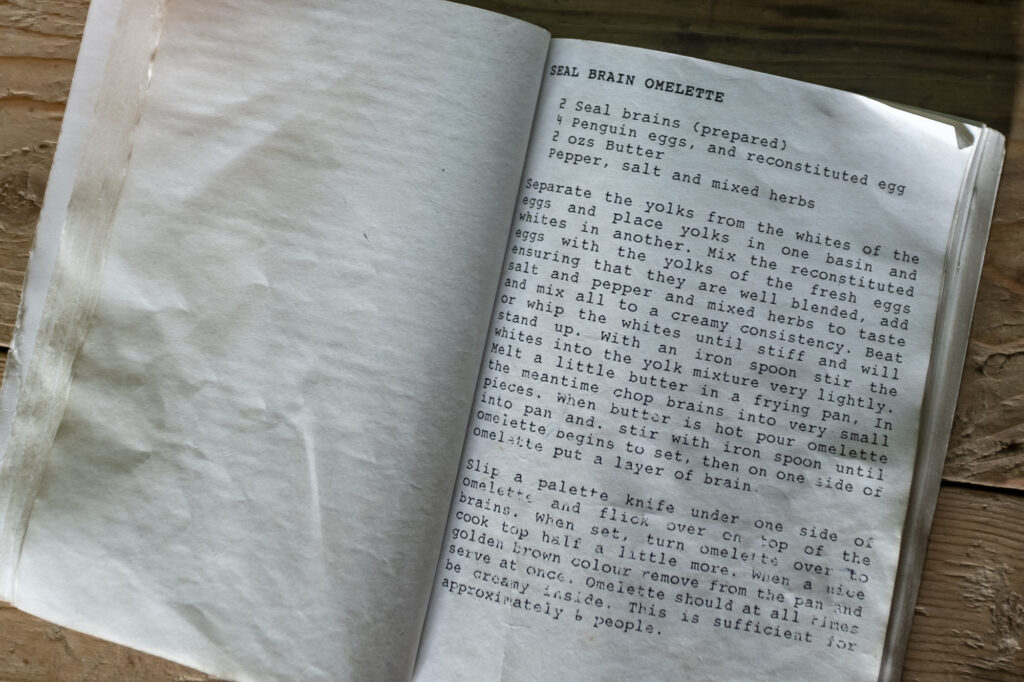 SEAL BRAIN OMELETTE
2 Seal brains (prepared)
4 Penguin eggs, and reconstituted egg
2 ozs Butter
Pepper, salt and mixed herbs
Separate the yolks from the whites of the
eggs and place yolks in one basin and
whites in another. Mix the reconstituted
eggs with the yolks of the fresh eggs
ensuring that they are well blended, add
salt and pepper and mixed herbs to taste
and mix all to a creamy consistency. Beat
or whip the whites until stiff and will
stand up. With an iron spoon stir the
whites into the yolk mixture very lightly.
Melt a little butter in a frying pan, In
the meantime chop brains into very small
pieces. When butter is hot pour omelette
into pan and. stir with iron spoon until
omelette begins to set, then on one side of
omelette put a layer of brain.
Slip a palette knife under one side of
omelette and flick over on top of the
brains. When set, turn omelette over to
cook top half a little more. When a nice
golden brown colour remove from the pan and
serve at once. Omelette should at all times
be creamy inside. This is sufficient for
approximately 6 people.